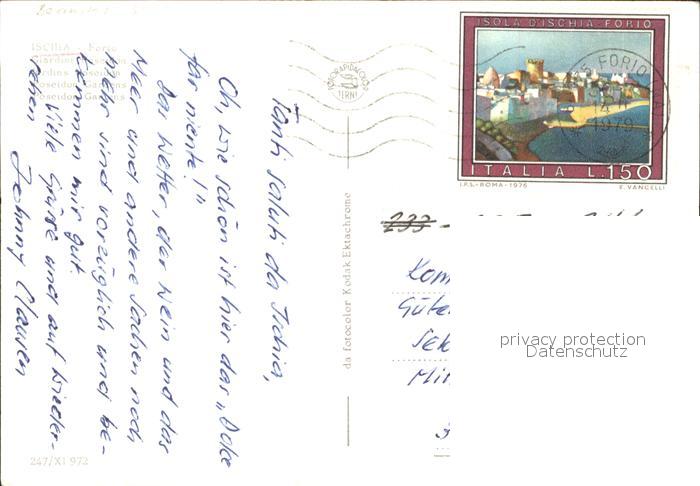 ISCHIA - Forio
Giardini Poseidon
Jardins Poseidon
Poseidon Gardens
Poseidon Gardens
Tanti saluti da Ischia,
Oh, wie schön ist hier das „Dolce
far niente!"
Das Wetter, der Wein und das
Meer und andere Sachen noch
mehr sind vorzüglich und be-
kommen mir gut.
Viele Grüsse und auf Wieder-
sehen
Johnny Clausen
247/XI 972
FOTORAPIDACOLOR
TERNI
da fotocolor Kodak Ektachrome
ISOLA D'ISCHIA - FORIO
ITALIA L.150
I.P.S.-ROMA-1976 E. VANCELLI
FORIO
1979
233 -
Kom
Güte
Sek
Mit
privacy protection
Datenschutz